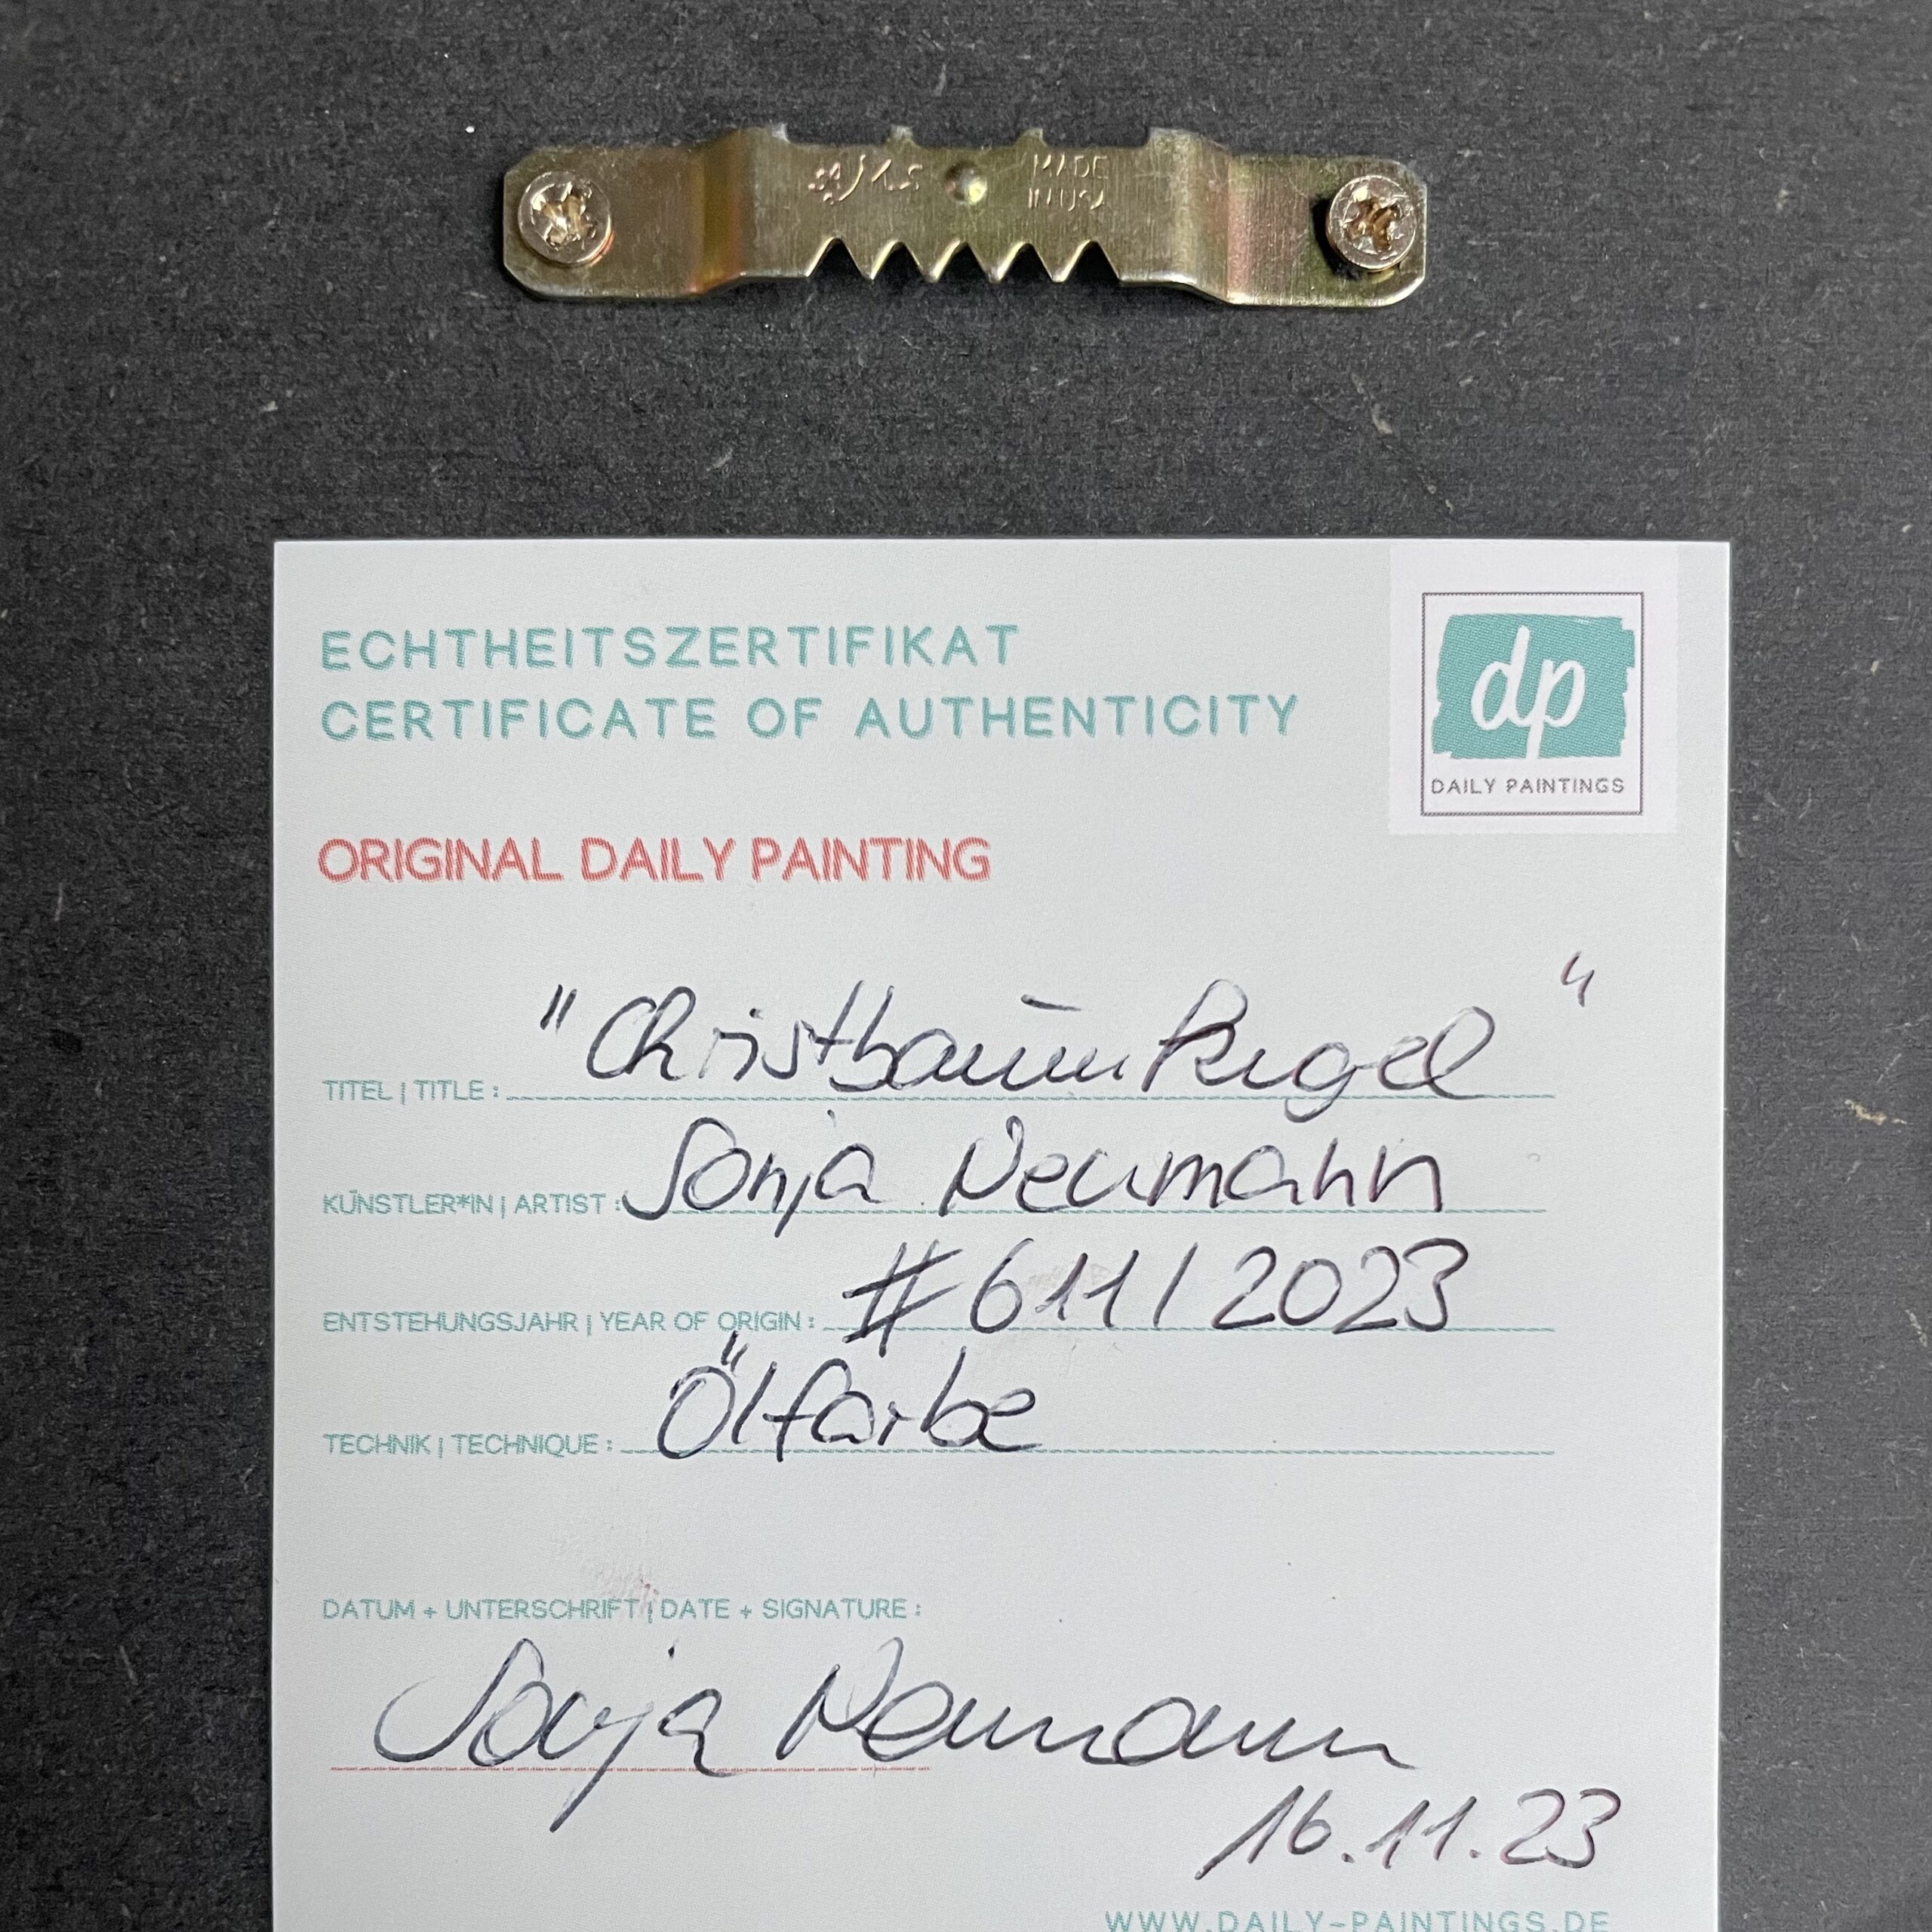 MADE
IN USA
ECHTHEITSZERTIFIKAT
CERTIFICATE OF AUTHENTICITY
dp
DAILY PAINTINGS
ORIGINAL DAILY PAINTING
TITEL | TITLE : "Christbaumkugel"
KÜNSTLER*IN | ARTIST : Sonja Neumann
ENTSTEHUNGSJAHR | YEAR OF ORIGIN : #611 / 2023
TECHNIK | TECHNIQUE : Ölfarbe
DATUM + UNTERSCHRIFT | DATE + SIGNATURE :
Sonja Neumann
16.11.23
WWW.DAILY-PAINTINGS.DE